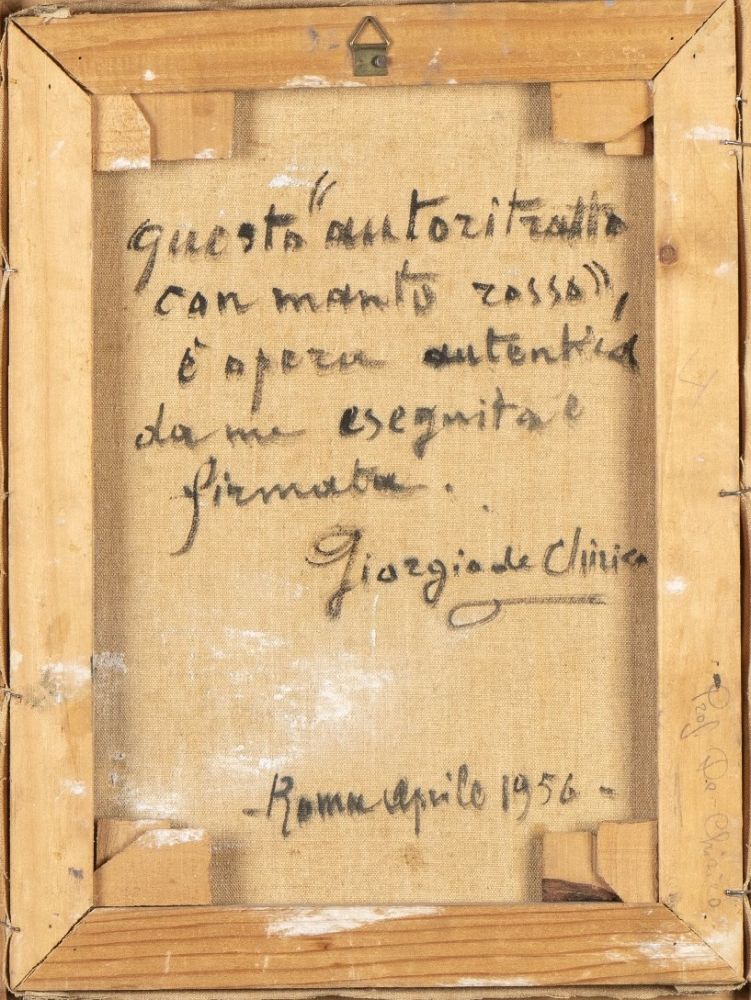 questo "autoritratto
con manto rosso",
è opera autentica
da me eseguita e
firmata.
Giorgio de Chirico
- Roma aprile 1956 -
Prof. De Chirico